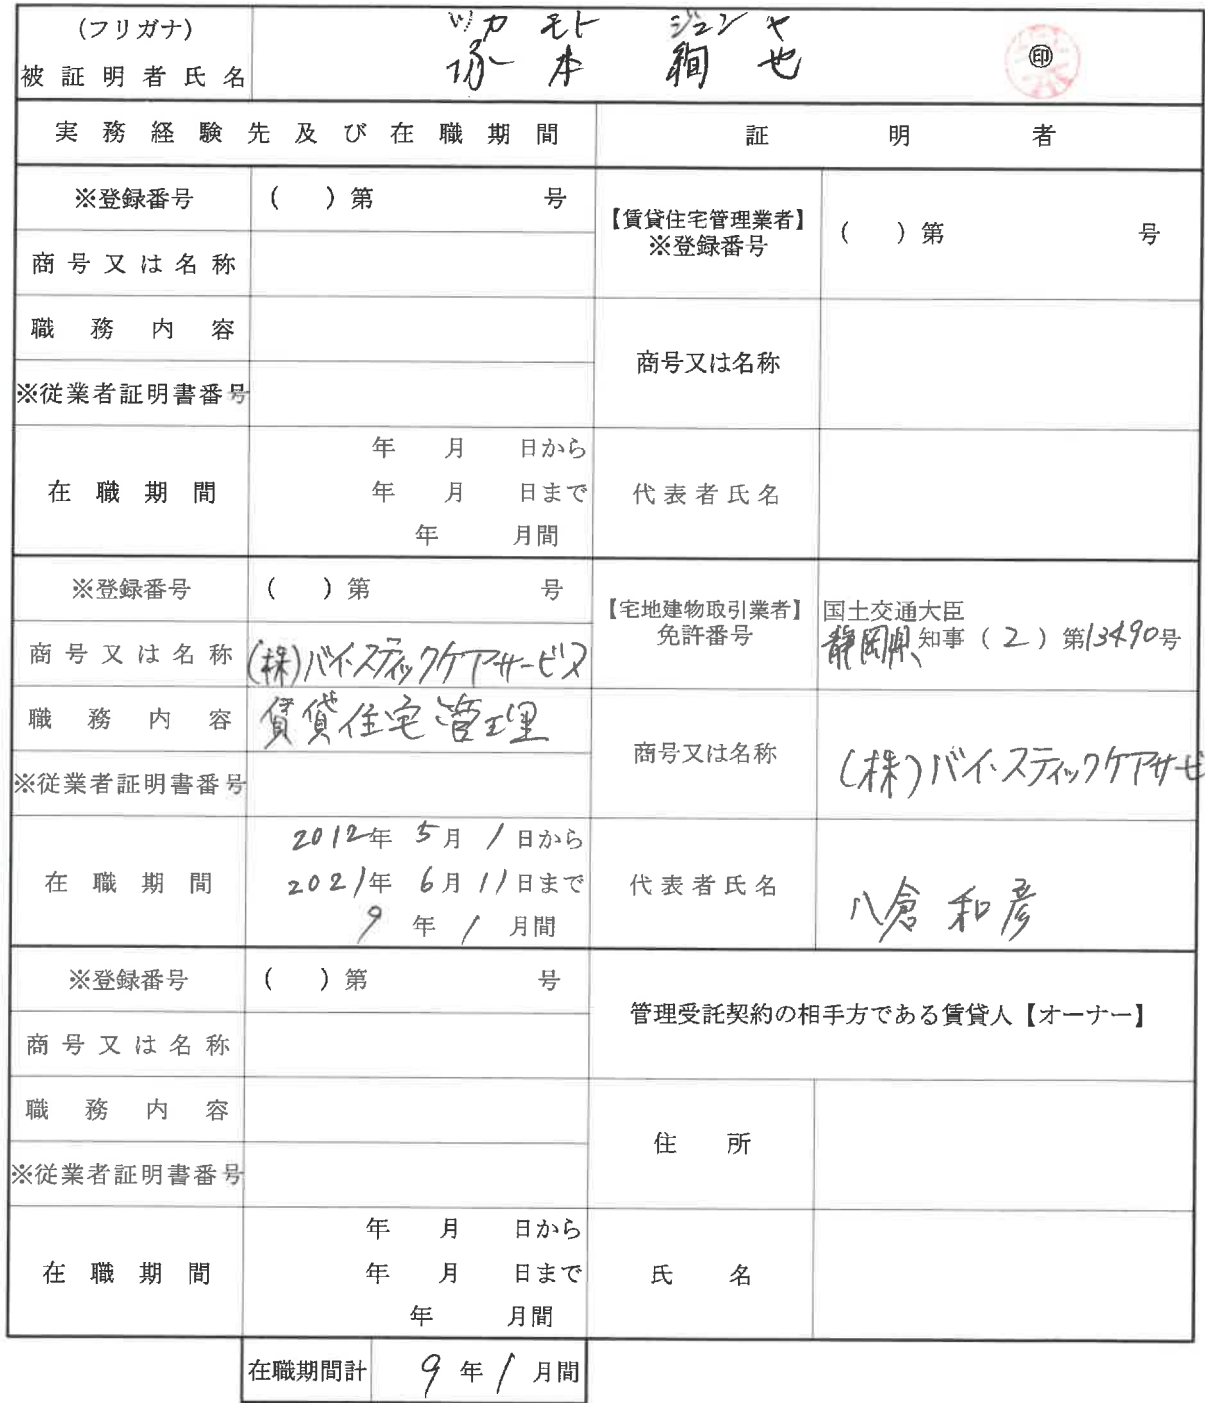 (フリガナ) ツカ モト ジュン ヤ
被証明者氏名 塚本 絢也 ㊞
実務経験先及び在職期間 証明者
※登録番号 ( )第 号
【賃貸住宅管理業者】
※登録番号 ( )第 号
商号又は名称
職務内容
商号又は名称
※従業者証明書番号
在職期間
年 月 日から
年 月 日まで
年 月間
代表者氏名
※登録番号 ( )第 号
【宅地建物取引業者】
免許番号
国土交通大臣
静岡県 知事 (2) 第13490号
商号又は名称 (株)バイ・スティックケアサービス
職務内容 賃貸住宅管理
商号又は名称 (株)バイ・スティックケアサービ
※従業者証明書番号
在職期間
2012年 5月 1日から
2021年 6月 11日まで
9年 1月間
代表者氏名 八倉 和彦
※登録番号 ( )第 号
管理受託契約の相手方である賃貸人【オーナー】
商号又は名称
職務内容
住所
※従業者証明書番号
在職期間
年 月 日から
年 月 日まで
年 月間
氏名
在職期間計 9年1月間